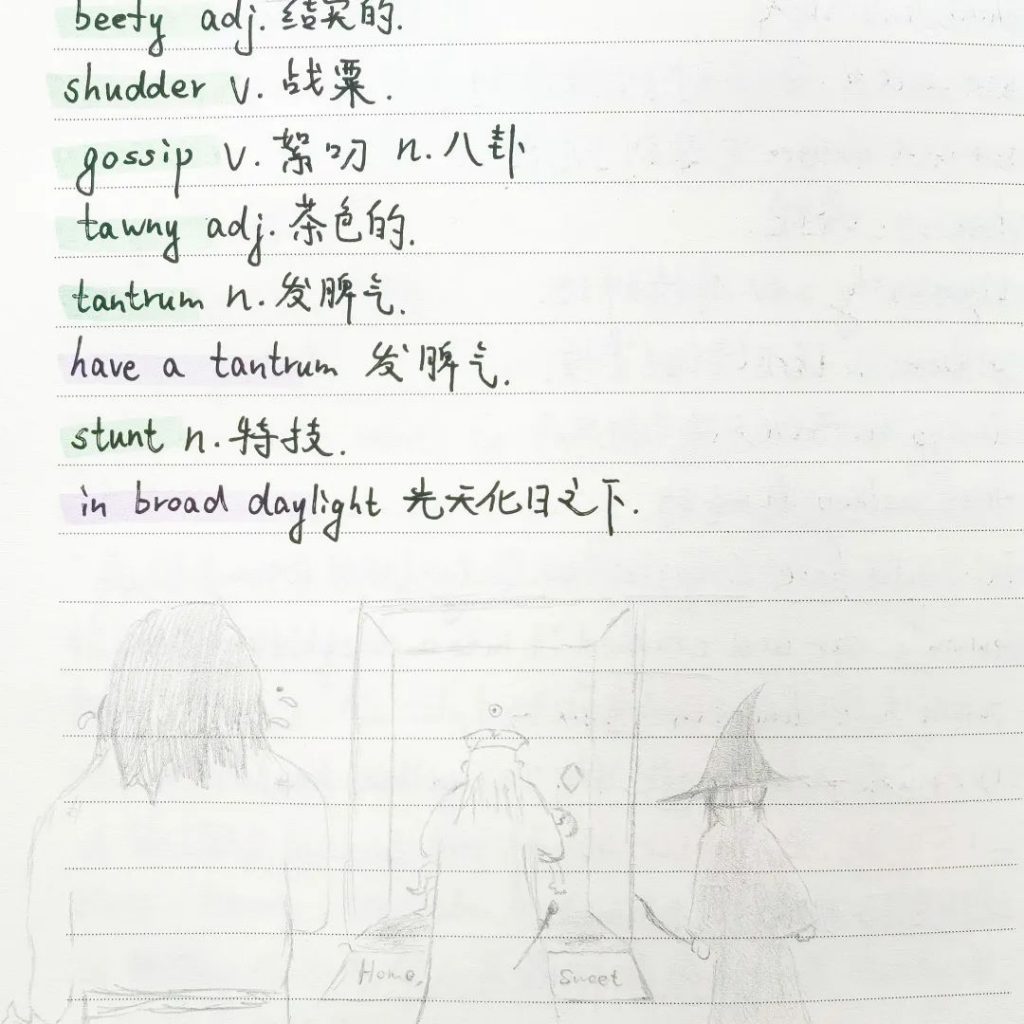 beefy adj. 结实的.
shudder v. 战粟.
gossip v. 絮叨 n. 八卦
tawny adj. 茶色的.
tantrum n. 发脾气.
have a tantrum 发脾气.
stunt n. 特技.
in broad daylight 光天化日之下.
Home, Sweet